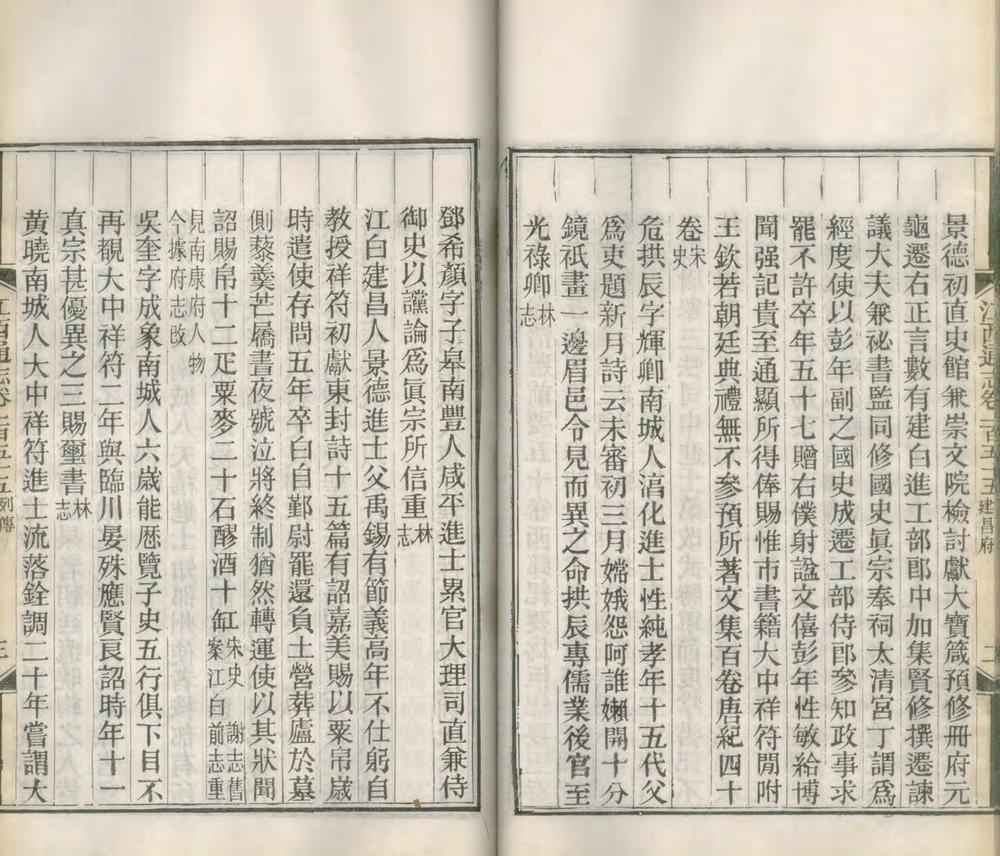 景德初直史館兼崇文院檢討獻大寶箴預修冊府元
龜遷右正言數有建白進工部郎中加集賢修撰遷諫
議大夫兼祕書監同修國史眞宗奉祠太清宮丁謂爲
經度使以彭年副之國史成遷工部侍郎參知政事求
罷不許卒年五十七贈右僕射諡文僖彭年性敏給博
聞强記貴至通顯所得俸賜惟市書籍大中祥符閒附
王欽若朝廷典禮無不參預所著文集百卷唐紀四十
卷宋史
危拱辰字輝卿南城人淳化進士性純孝年十五代父
爲吏題新月詩云未審初三月嫦娥怨阿誰嬾開十分
鏡祇畫一邊眉邑令見而異之命拱辰專儒業後官至
光祿卿林志
江西通志卷一百五十五建昌府
二
鄧希顏字子皋南豐人咸平進士累官大理司直兼侍
御史以讜論爲眞宗所信重林志
江白建昌人景德進士父禹錫有節義高年不仕躬自
教授祥符初獻東封詩十五篇有詔嘉美賜以粟帛歲
時遣使存問五年卒白自鄞尉罷還負土營葬廬於墓
側藜羹芒屩晝夜號泣將終制猶然轉運使以其狀聞
詔賜帛十二疋粟麥二十石醪酒十缸宋史 謝志舊案江白前志重
見南康府人物今據府志改
吳奎字成象南城人六歲能歷覽子史五行俱下目不
再覩大中祥符二年與臨川晏殊應賢良詔時年十一
真宗甚優異之三賜璽書林志
黄曉南城人大中祥符進士流落銓調二十年嘗謂大
江西通志卷一百五十五列傳
三